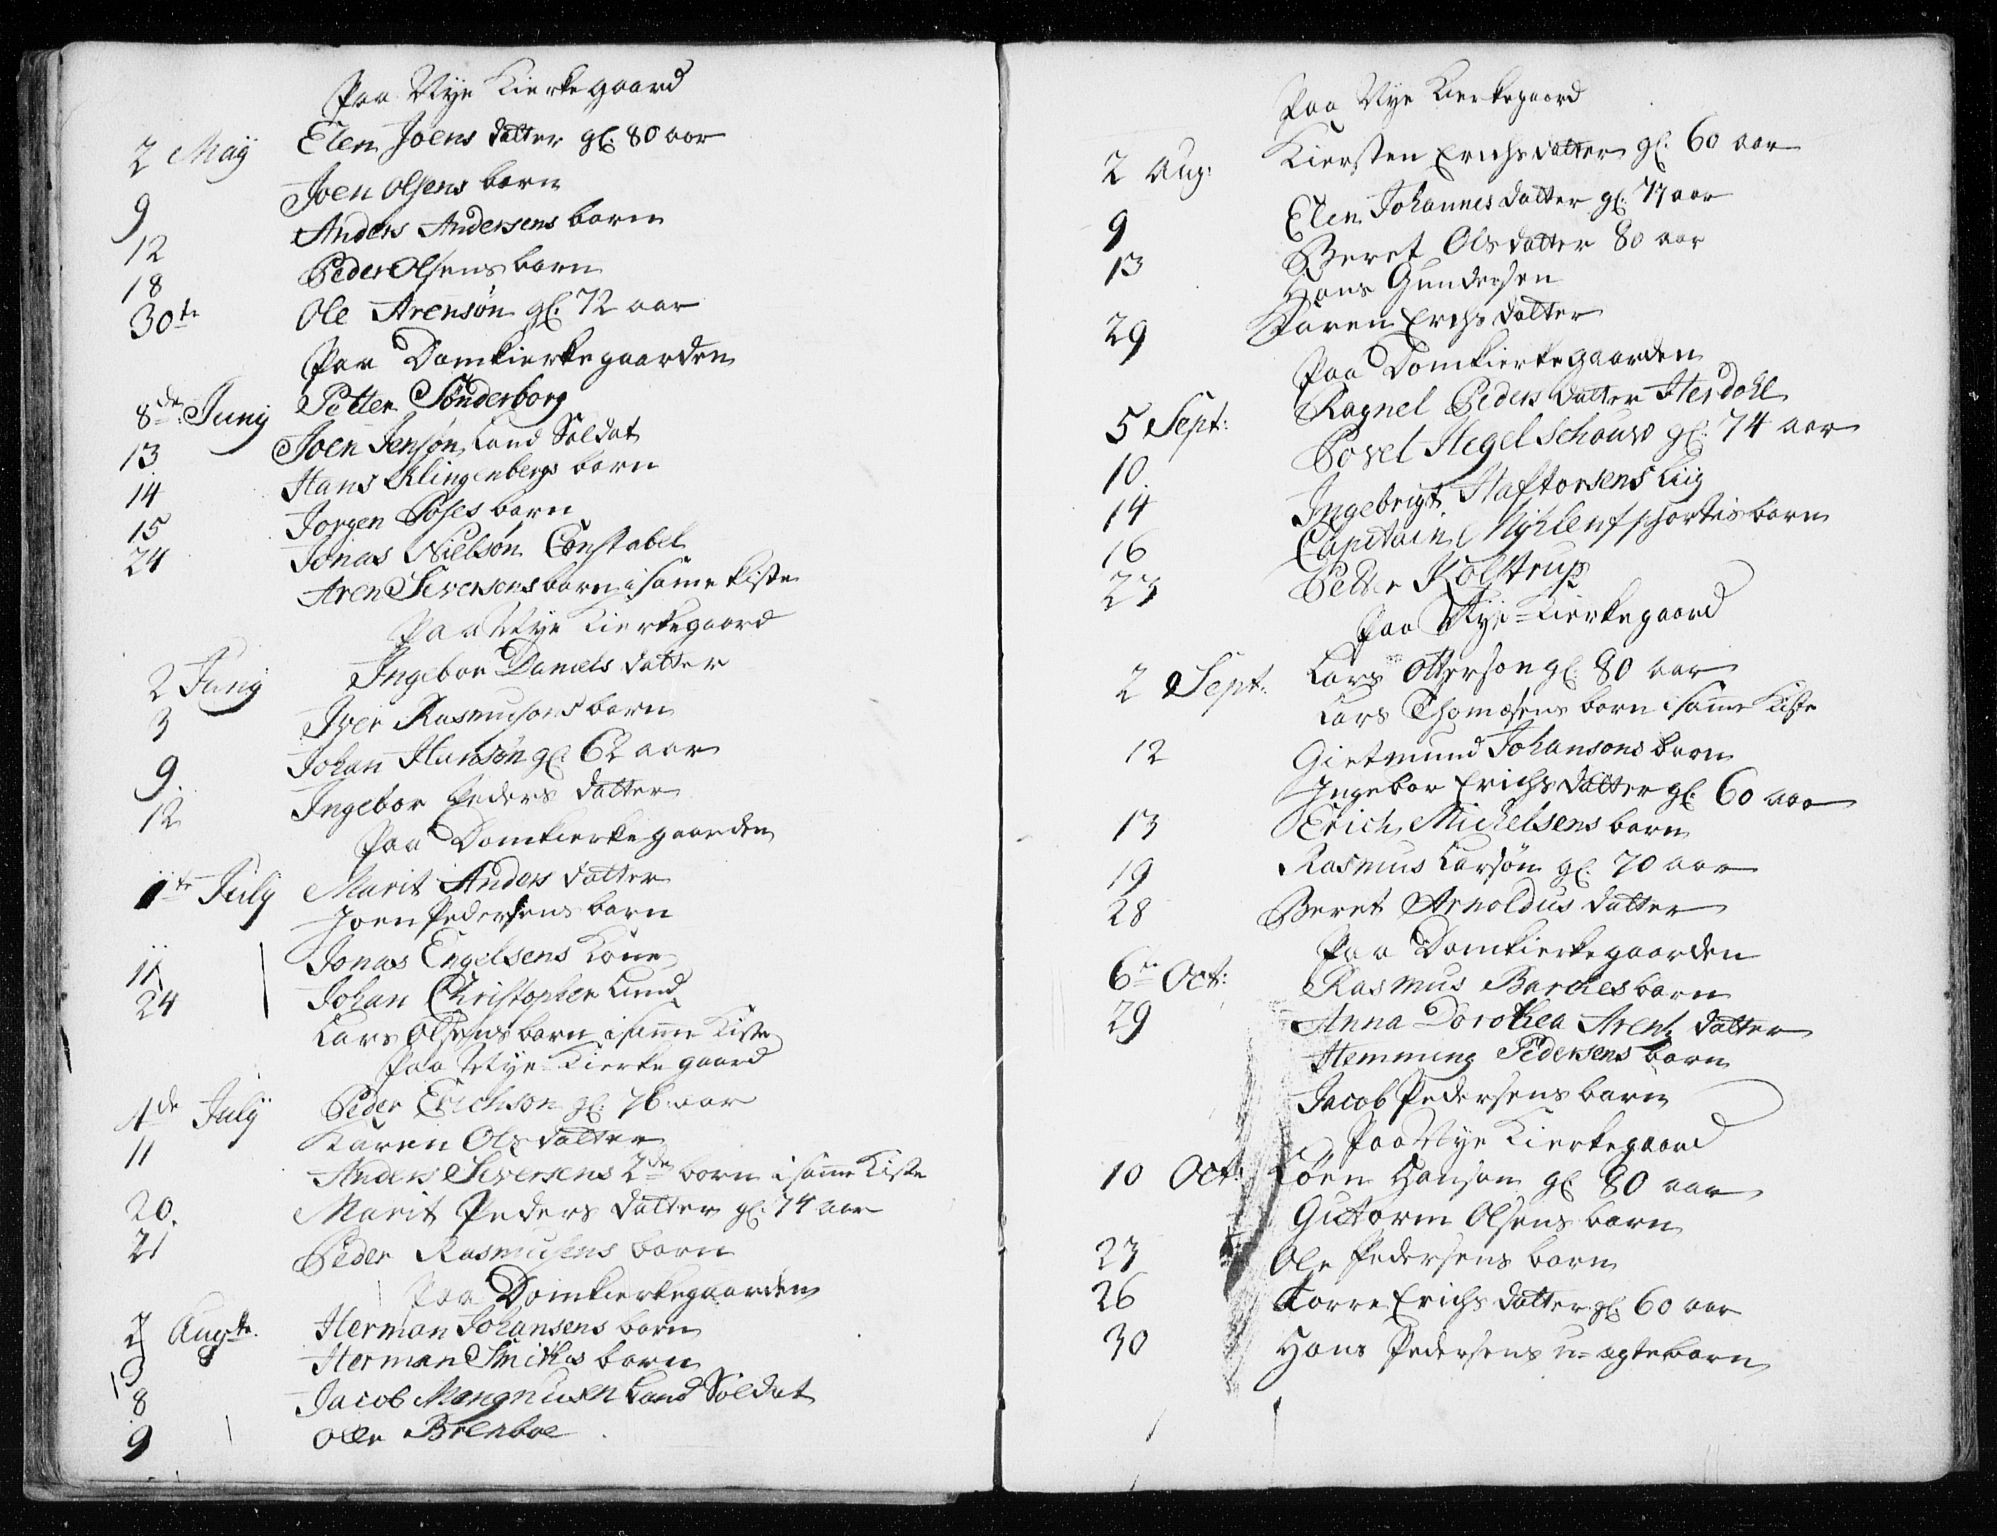 Paa Nye Kierkegaard
2 Maÿ Elen Joens datter gl: 80 aar
9 Joen Olsens barn
12 Anders Andersens barn
18 Peder Olsens barn
30te Ole Arensøn gl: 72 aar
Paa Domkierkegaarden
8de Junÿ Petter Sønderborg
13 Joen Jensøn Land Soldat
14 Hans Klingenbergs barn
15 Jørgen Poses barn
24 Jonas Nielsøn Constabel
Aren Siversens barn i same kiste
Paa Nye Kierkegaard
2 Junÿ Ingebor Daniels datter
3 Iver Rasmusøns barn
9. Johan Hansøn gl: 62 aar
12 Ingebor Peders datter
Paa Domkierkegaarden
1te Julÿ Marit Anders datter
Joen Pedersens barn
11 Jonas Engelsens Kone
24 Johan Christopher Lund
Lars Olsens barn i same Kiste
Paa Nye Kierkegaard
4de Julÿ Peder Erichson gl: 76 aar
11 Karen Ols datter
Anders Siversens 2de born i same Kiste
20. Marit Peders datter gl: 74 aar
21 Peder Rasmusens barn
Paa Domkierkegaarden
2 Aug Herman Johansens barn
3 Herman Smidts barn
8 Jacob Mangnusen Land Soldat
9 Olle Brenboe
Paa Nye Kierkegaard
2 Aug: Kiersten Erichs datter gl: 60 aar
9 Elen Johannes datter gl: 77 aar
13 Beret Ols datter 80 aar
Hans Gundersen
29 Karen Erichs datter
Paa Domkierkegaarden
5 Sept: Ragnel Peders datter Hesdahl
10. Povel Hegelschouw gl: 74 aar
14 Ingebrigt Haftorsens Liig
16 Capitain Myhlenfphortis barn
23 Peder Kolstrup
Paa Nye Kierkegaard
2 Sept: Lars Otterson gl: 80 aar
Lars Thomesens barn i same Kiste
12 Gietmund Johansons barn
Ingebor Erichs datter gl: 60 aar
13 Erich Michelsens barn
19 Rasmus Larsøn gl: 70 aar
28 Beret Arnoldus datter
Paa Domkierkegaarden
6te Oct: Rasmus Barches barn
29 Anna Dorothea Arentz datter
Hemming Pedersens barn
Jacob Pedersens barn
Paa Nye Kierkegaard
10 Oct: Søren Hanson gl: 80 aar
Gutorm Olsens barn
23 Ole Pedersens barn
26 Torre Erichs datter gl: 60 aar
30 Hans Pedersens u-ægte barn